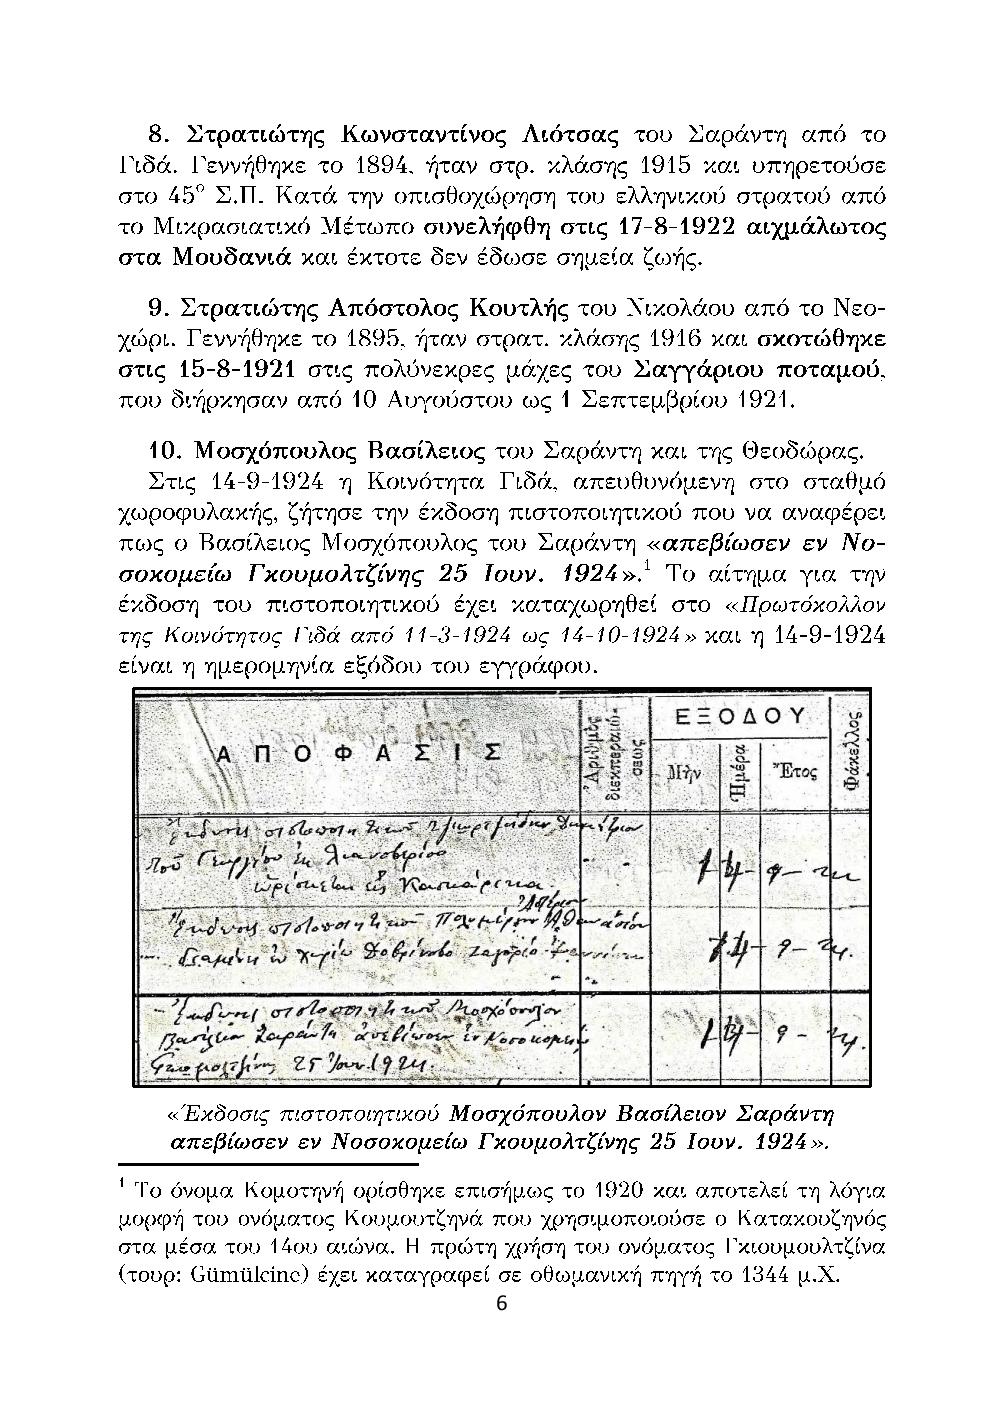 8. Στρατιώτης Κωνσταντίνος Λιότσας του Σαράντη από το
Γιδά. Γεννήθηκε το 1894, ήταν στρ. κλάσης 1915 και υπηρετούσε
στο 45º Σ.Π. Κατά την οπισθοχώρηση του ελληνικού στρατού από
το Μικρασιατικό Μέτωπο συνελήφθη στις 17-8-1922 αιχμάλωτος
στα Μουδανιά και έκτοτε δεν έδωσε σημεία ζωής.
9. Στρατιώτης Απόστολος Κουτλής του Νικολάου από το Νεο-
χώρι. Γεννήθηκε το 1895, ήταν στρατ. κλάσης 1916 και σκοτώθηκε
στις 15-8-1921 στις πολύνεκρες μάχες του Σαγγάριου ποταμού,
που διήρκησαν από 10 Αυγούστου ως 1 Σεπτεμβρίου 1921.
10. Μοσχόπουλος Βασίλειος του Σαράντη και της Θεοδώρας.
Στις 14-9-1924 η Κοινότητα Γιδά, απευθυνόμενη στο σταθμό
χωροφυλακής, ζήτησε την έκδοση πιστοποιητικού που να αναφέρει
πως ο Βασίλειος Μοσχόπουλος του Σαράντη «απεβίωσεν εν Νο-
σοκομείω Γκουμολτζίνης 25 Ιουν. 1924».¹ Το αίτημα για την
έκδοση του πιστοποιητικού έχει καταχωρηθεί στο «Πρωτόκολλον
της Κοινότητος Γιδά από 11-3-1924 ως 14-10-1924» και η 14-9-1924
είναι η ημερομηνία εξόδου του εγγράφου.
ΑΠΟΦΑΣΙΣ
Ἀριθμὸς διεκπεραιώ-σεως
ΕΞΟΔΟΥ
Μὴν
Ἡμέρα
Ἔτος
Φάκελλος
τοῦ Γεωργίου ἐκ
14 - 9 - 24
Ἔκδοσις πιστοποιητικοῦ
14 - 9 - 24.
Ἔκδοσις πιστοποιητικοῦ Μοσχόπουλον
Βασίλειον Σαράντη ἀπεβίωσεν ἐν Νοσοκομείῳ
Γκουμολτζίνης 25 Ἰουν. 1924.
14 - 9 - 24.
«Έκδοσις πιστοποιητικού Μοσχόπουλον Βασίλειον Σαράντη
απεβίωσεν εν Νοσοκομείω Γκουμολτζίνης 25 Ιουν. 1924».
¹ Το όνομα Κομοτηνή ορίσθηκε επισήμως το 1920 και αποτελεί τη λόγια
μορφή του ονόματος Κουμουτζηνά που χρησιμοποιούσε ο Κατακουζηνός
στα μέσα του 14ου αιώνα. Η πρώτη χρήση του ονόματος Γκιουμουλτζίνα
(τουρ: Gümülcine) έχει καταγραφεί σε οθωμανική πηγή το 1344 μ.Χ.
6